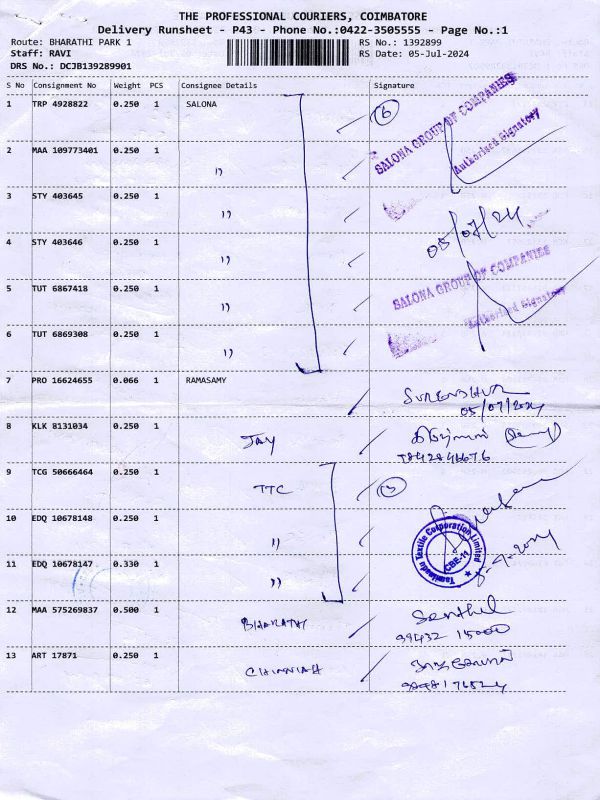 THE PROFESSIONAL COURIERS, COIMBATORE
Delivery Runsheet - P43 - Phone No.:0422-3505555 - Page No.:1
Route: BHARATHI PARK 1 RS No.: 1392899
Staff: RAVI RS Date: 05-Jul-2024
DRS No.: DCJB139289901
S No Consignment No Weight PCS Consignee Details Signature
1 TRP 4928822 0.250 1 SALONA 6
SALONA GROUP OF COMPANIES
Authorised Signatory
2 MAA 109773401 0.250 1 "
3 STY 403645 0.250 1 "
05/07/24
4 STY 403646 0.250 1 "
SALONA GROUP OF COMPANIES
Authorised Signatory
5 TUT 6867418 0.250 1 "
6 TUT 6869308 0.250 1 "
7 PRO 16624655 0.066 1 RAMASAMY
05/07/2024
8 KLK 8131034 0.250 1 JAY
9 TCG 50666464 0.250 1 TTC 3
10 EDQ 10678148 0.250 1 "
Tamilnadu Textile Corporation Limited
CBE-11
11 EDQ 10678147 0.330 1 "
12 MAA 575269837 0.500 1 BHARATHY Senthil
99432 15000
13 ART 17871 0.250 1 CHINNIAH